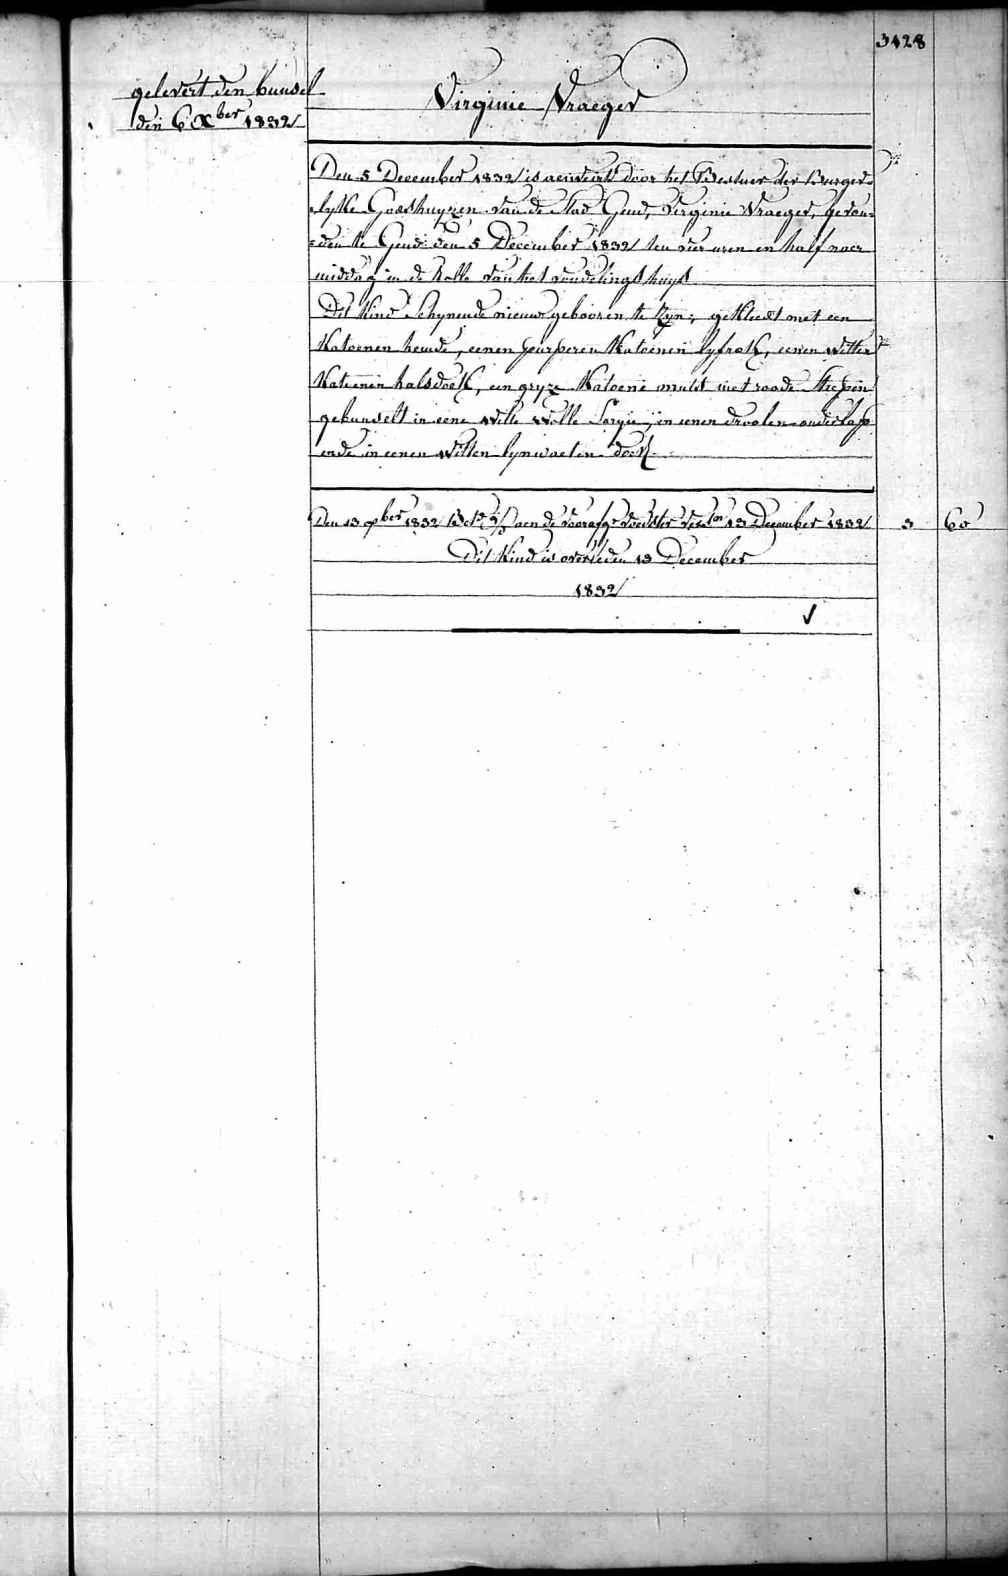 3428
gelevert den bunsel
den 6 Xber 1832
Virginie Vraeger
Den 5 December 1832 is aenveirt door het Bestuer der Burger-
-lyke Godshuyzen van de Stad Gend, Virginie Vraeger, gevon-
-den te Gend den 5 December 1832 ten vier uren en half naer
middag in de Rolle van het vondelingshuys
Dit Kind schynende nieuw gebooren te Zyn; gekleedt met een
Katoenen hemde, eenen purperen Katoenen lyfrok, eenen witten
Katoenen halsdoek, een gryze Katoene muts met roode streepen
gebunselt in eene witte wolle Sargie, in eenen onderlap
ende in eenen witten lynwaeten doek
Den 13 xber 1832 aen de voedster 13 December 1832 3 60
Dit Kind is overleden 13 December
1832